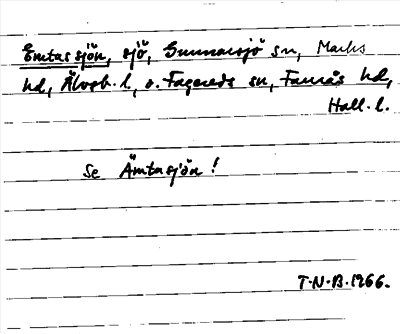 Emtassjön, sjö, Gunnarsjö sn, Marks
hd, Älvsb. l, o. Fagereds sn, Faurås hd,
Hall. l.
Se Ämtasjön!
T.N.B. 1966.